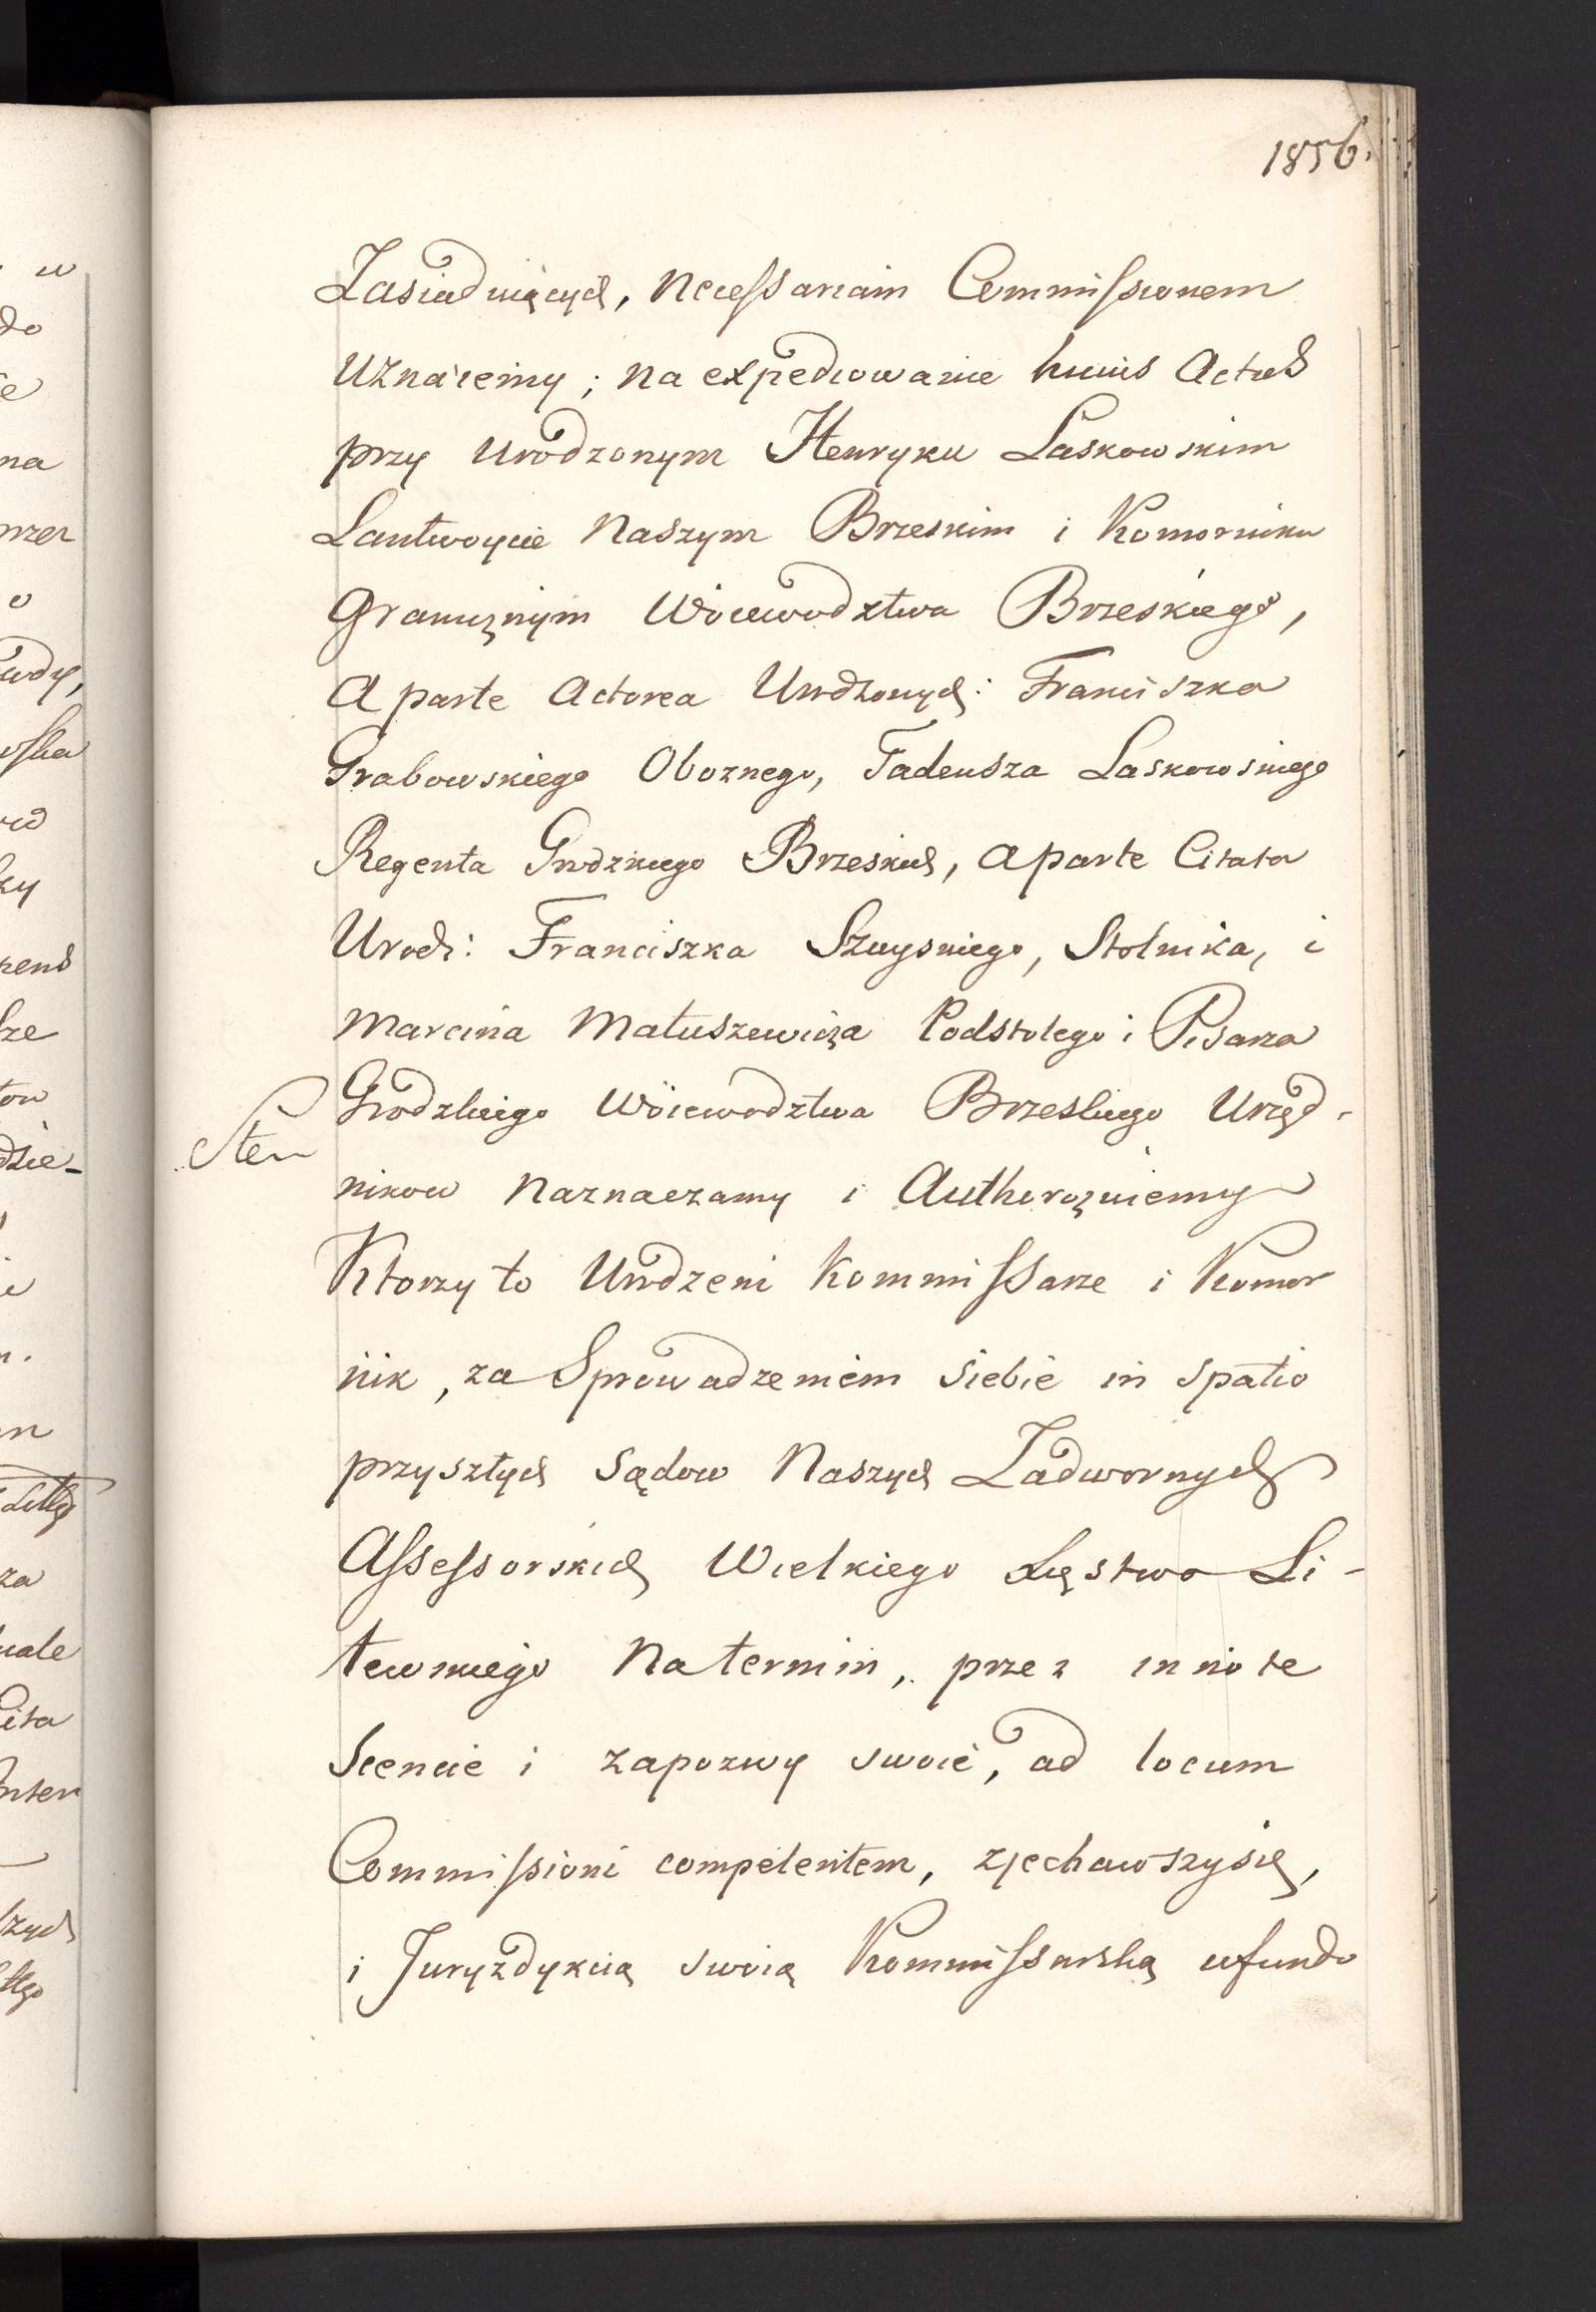 1856.
Zasiadaiących, Necessariam Commissionem
Uznaiemy; na expediowanie huius Actus
przy Urodzonym Henryku Laskowskim
Lantwoycie Naszym Brzeskim i Komorniku
Granicznym Woiewodztwa Brzeskiego,
a parte Actorea Urodzonych: Franciszka
Grabowskiego Oboznego, Tadeusza Laskowskiego
Regenta Grodzkiego Brzeskich, a parte Citata
Urodz: Franciszka Szuyskiego, Stolnika, i
Marcina Matuszewicza Podstolego i Pisarza
Grodzkiego Woiewodztwa Brzeskiego Urzęd-
nikow Naznaczamy i Authorozuiemy
Ktorzy to Urodzeni Kommissarze i Komor
nik, za Sprowadzeniem siebie in spatio
przyszłych Sądow Naszych Zadwornych
Assessorskich Wielkiego Xięstwa Li-
tewskiego Na termin, przez innote
scencie i zapozwy swoie, ad locum
Commissioni competentem, zjechawszy się,
i Juryzdykcią swoią Kommissarską ufundo